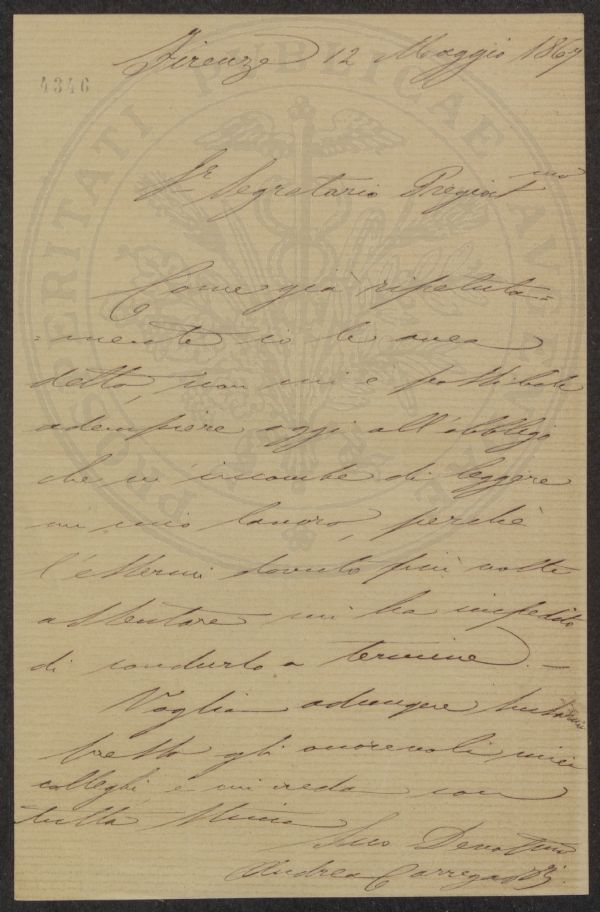 Firenze 12 Maggio 1867
4346
Sr. Segretario Pregiatmo
Come già ripetuta=
=mente io le avea
detto, non mi è possibile
adempiere oggi all'obbligo
che m'incombe di leggere
un mio lavoro, perchè
l'essermi dovuto più volte
assentare mi ha impedito
di condurlo a termine. —
Voglia adunque
presso gli onorevoli miei
colleghi, e mi creda con
tutta stima
Suo Devotmo
Andrea
PROSPERITATI PUBLICAE AUGENDAE